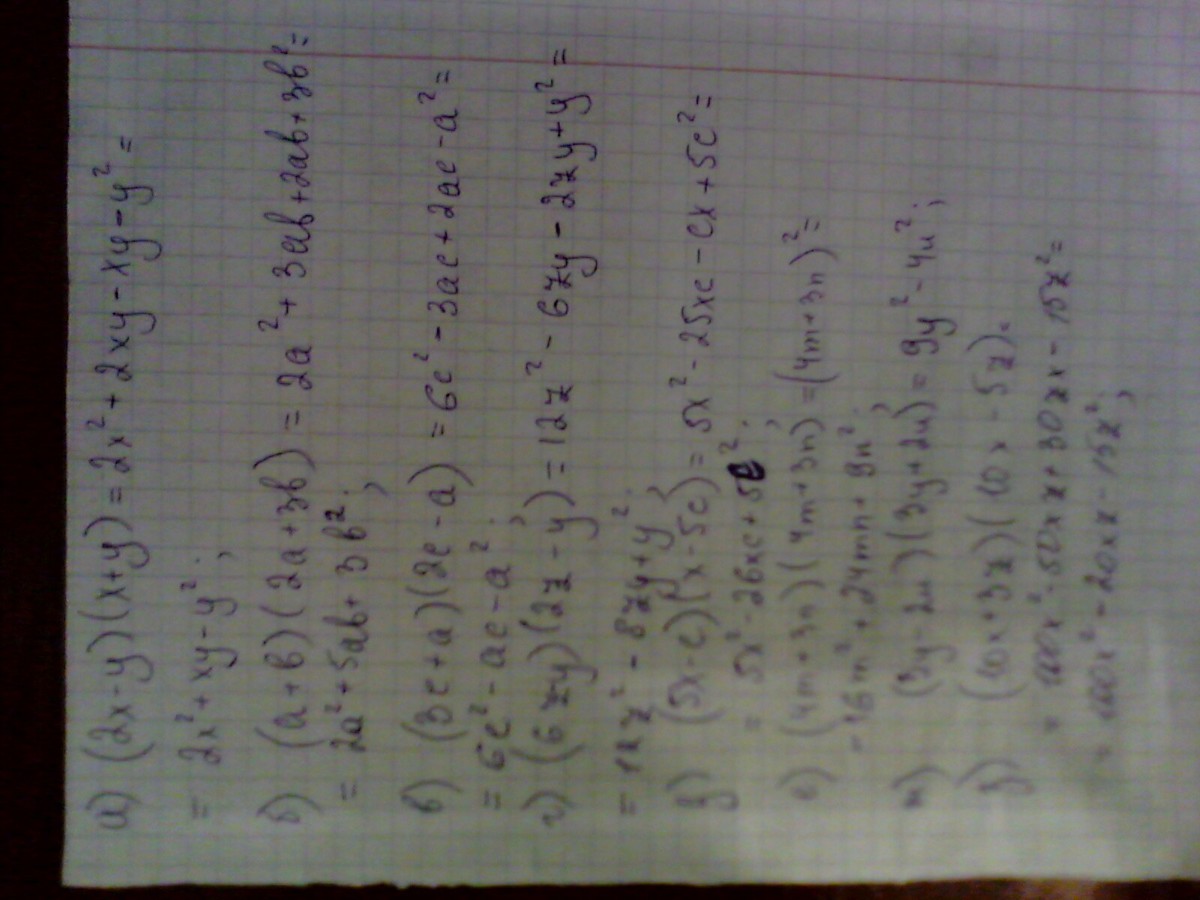 а) (2x-y)(x+y)=2x²+2xy-xy-y²=
= 2x²+xy-y²;
б) (a+b)(2a+3b)=2a²+3ab+2ab+3b²=
= 2a²+5ab+3b²;
в) (3c+a)(2c-a)=6c²-3ac+2ac-a²=
= 6c²-ac-a²;
г) (6zy)(2z-y)=12z²-6zy-2zy+y²=
= 12z²-8zy+y²;
д) (5x-c)(x-5c)=5x²-25xc-cx+5c²=
= 5x²-26xc+5c²;
е) (4m+3n)(4m+3n)=(4m+3n)²=
=16m²+24mn+9n²;
ж) (3y-2u)(3y+2u)=9y²-4u²;
з) (10x+3z)(10x-5z)=
= 100x²-50xz+30zx-15z²=
= 100x²-20xz-15z²;